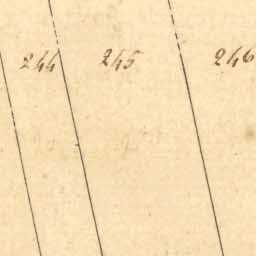 244 245 246